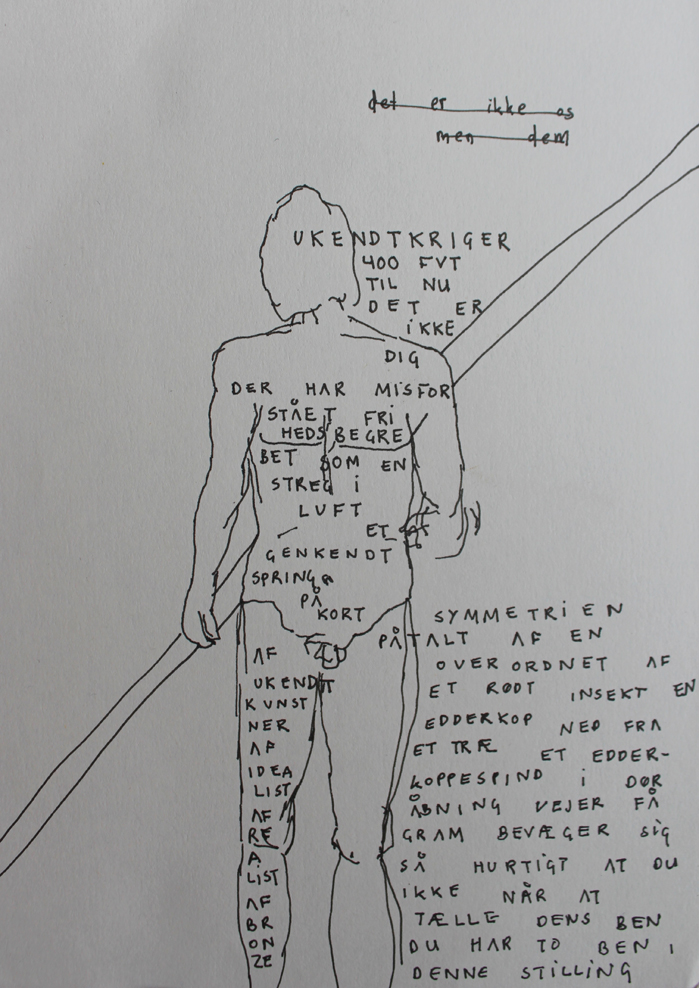 det er ikke os
men dem
UKENDTKRIGER
400 FVT
TIL NU
DET ER
IKKE
DIG
DER HAR MISFOR
STÅET FRI
HEDSBEGRE
BET SOM EN
STREG I
LUFT
ET
GENKENDT
SPRING
PÅ
KORT
AF
UKENDT
KUNST
NER
AF
IDEA
LIST
AF
RE
A
LIST
AF
BR
ON
ZE
SYMMETRIEN
PÅTALT AF EN
OVERORDNET AF
ET RØDT INSEKT EN
EDDERKOP NED FRA
ET TRÆ ET EDDER-
KOPPESPIND I DØR
ÅBNING VEJER FÅ
GRAM BEVÆGER SIG
SÅ HURTIGT AT DU
IKKE NÅR AT
TÆLLE DENS BEN
DU HAR TO BEN I
DENNE STILLING